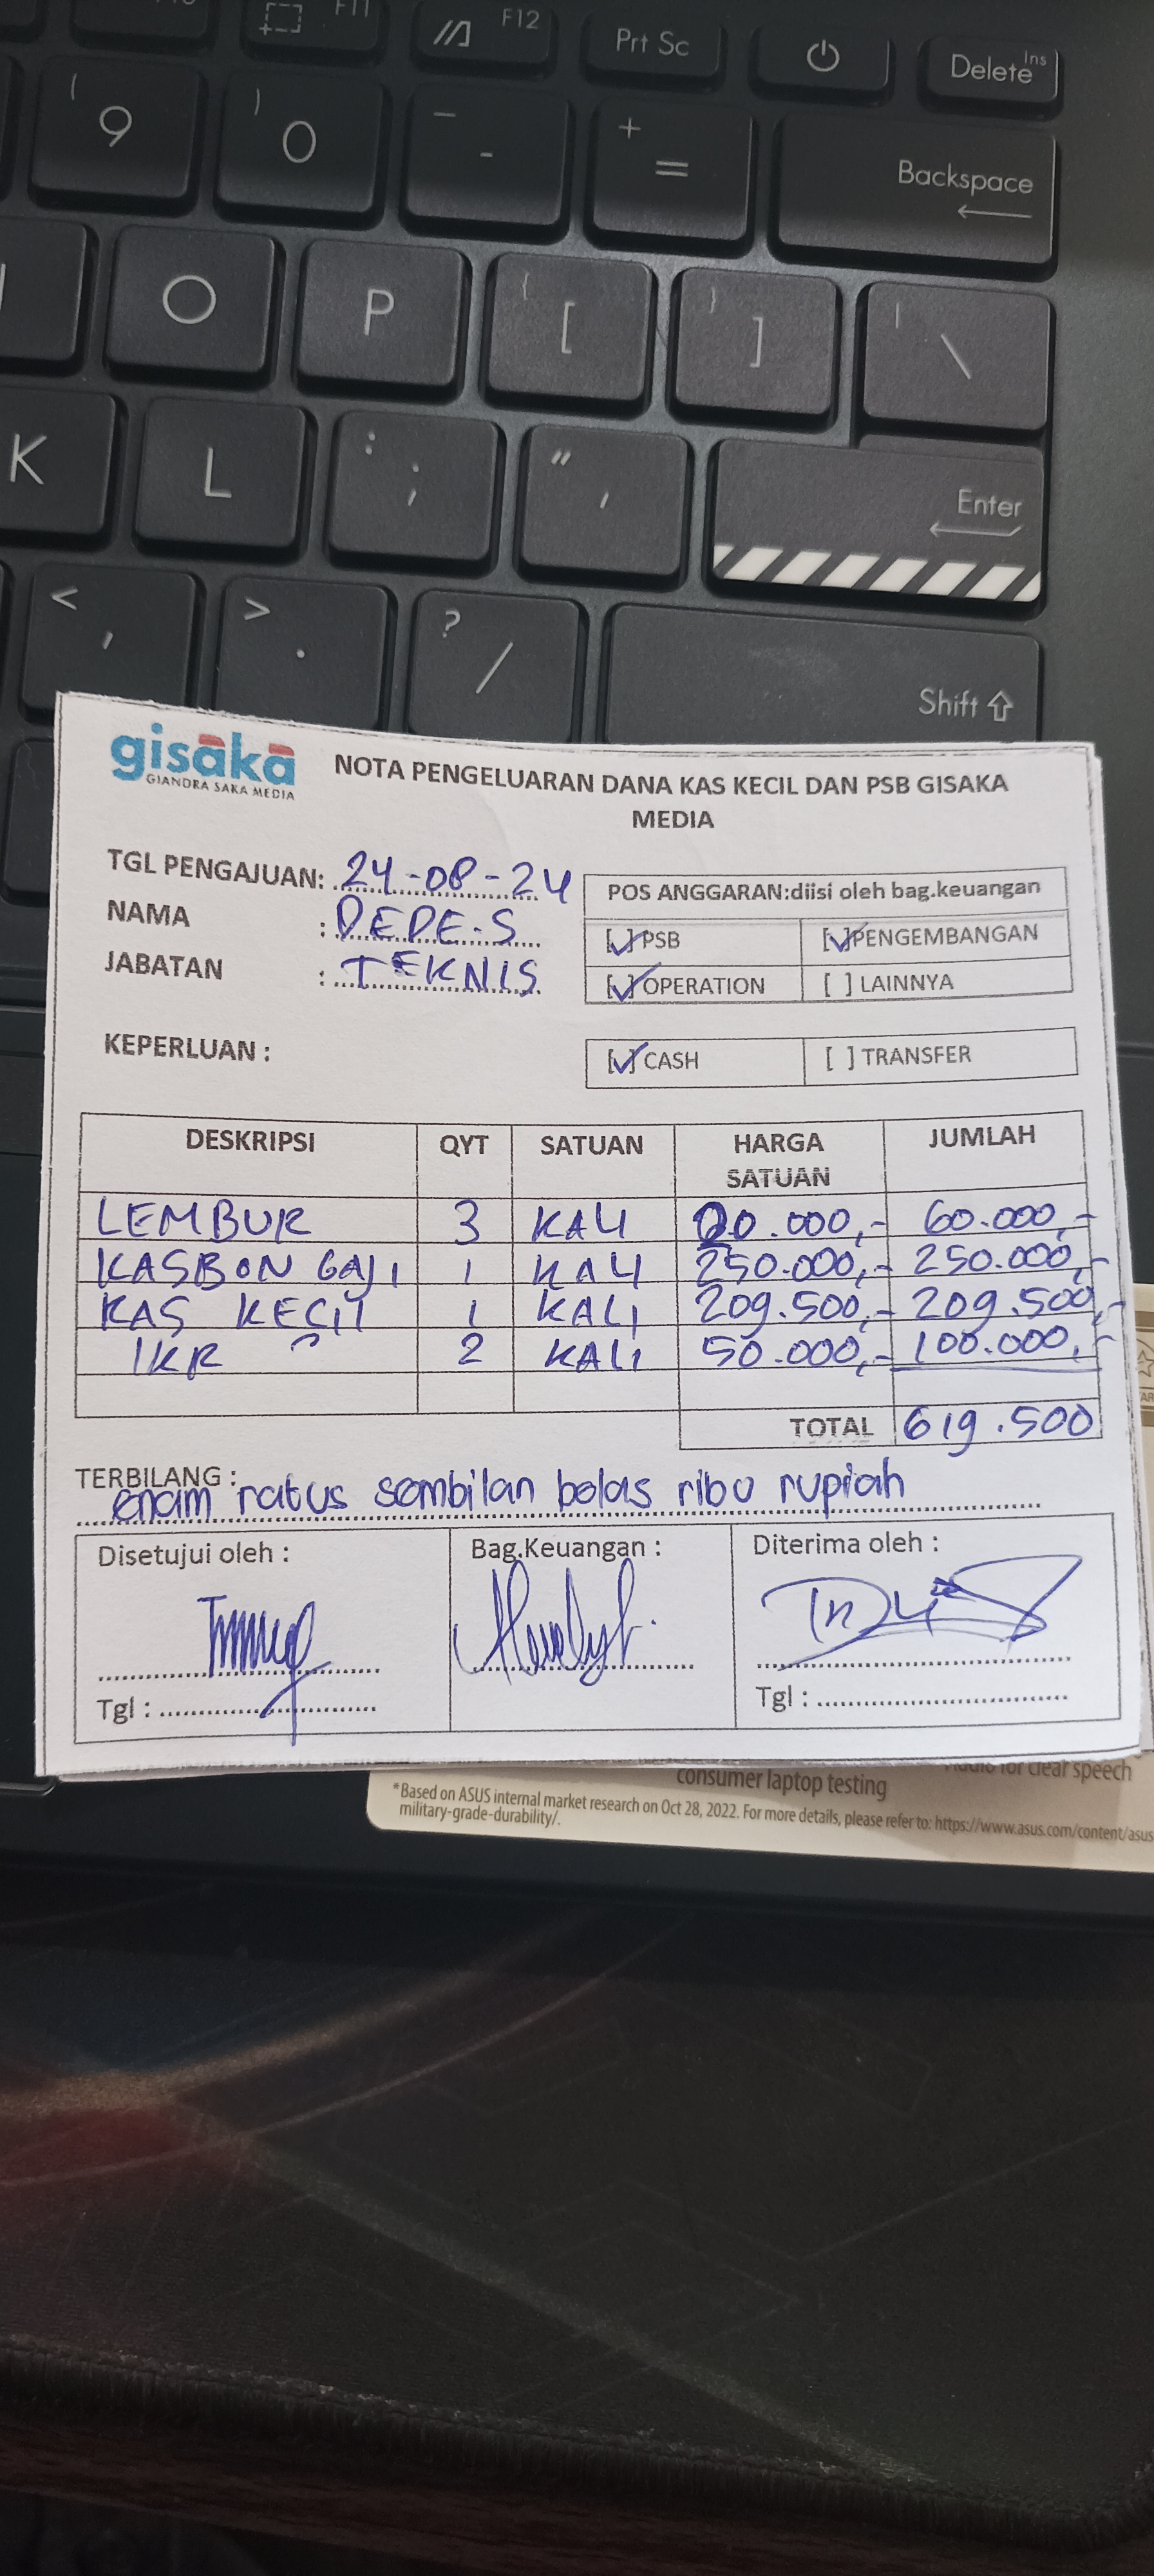 F11
F12
Prt Sc
Delete Ins
( 9
) 0
_ -
+ =
Backspace
O
P
{ [
} ]
| \
K
L
: ;
" '
Enter
< ,
> .
? /
Shift
gisaka
GIANDRA SAKA MEDIA
NOTA PENGELUARAN DANA KAS KECIL DAN PSB GISAKA
MEDIA
TGL PENGAJUAN: 24-08-24
NAMA : DEDE.S
JABATAN : TEKNIS
POS ANGGARAN:diisi oleh bag.keuangan
[✓] PSB [✓] PENGEMBANGAN
[✓] OPERATION [ ] LAINNYA
KEPERLUAN :
[✓] CASH [ ] TRANSFER
DESKRIPSI QYT SATUAN HARGA SATUAN JUMLAH
LEMBUR 3 KALI 20.000,- 60.000,-
KASBON GAJI 1 KALI 250.000,- 250.000,-
KAS KECIL 1 KALI 209.500,- 209.500,-
IKR 2 KALI 50.000,- 100.000,-
TOTAL 619.500
TERBILANG :
enam ratus sembilan belas ribu rupiah
Disetujui oleh : Bag.Keuangan : Diterima oleh :
Tgl : Tgl :
for clear speech
consumer laptop testing
*Based on ASUS internal market research on Oct 28, 2022. For more details, please refer to: https://www.asus.com/content/asus
military-grade-durability/.